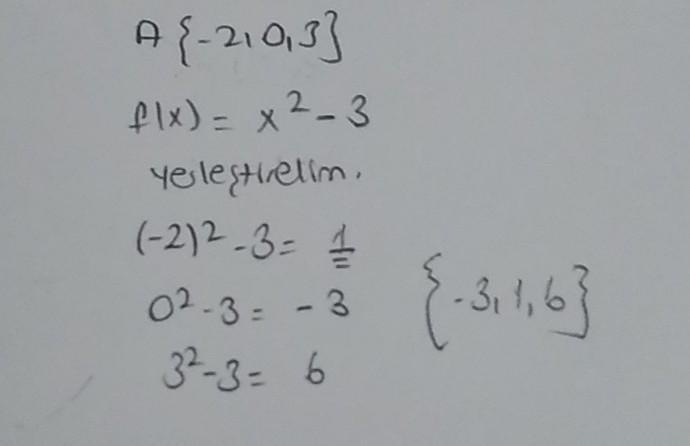 A {-2,0,3}
f(x) = x² - 3
yerleştirelim.
(-2)² - 3 = 1
0² - 3 = - 3
3² - 3 = 6
{-3,1,6}